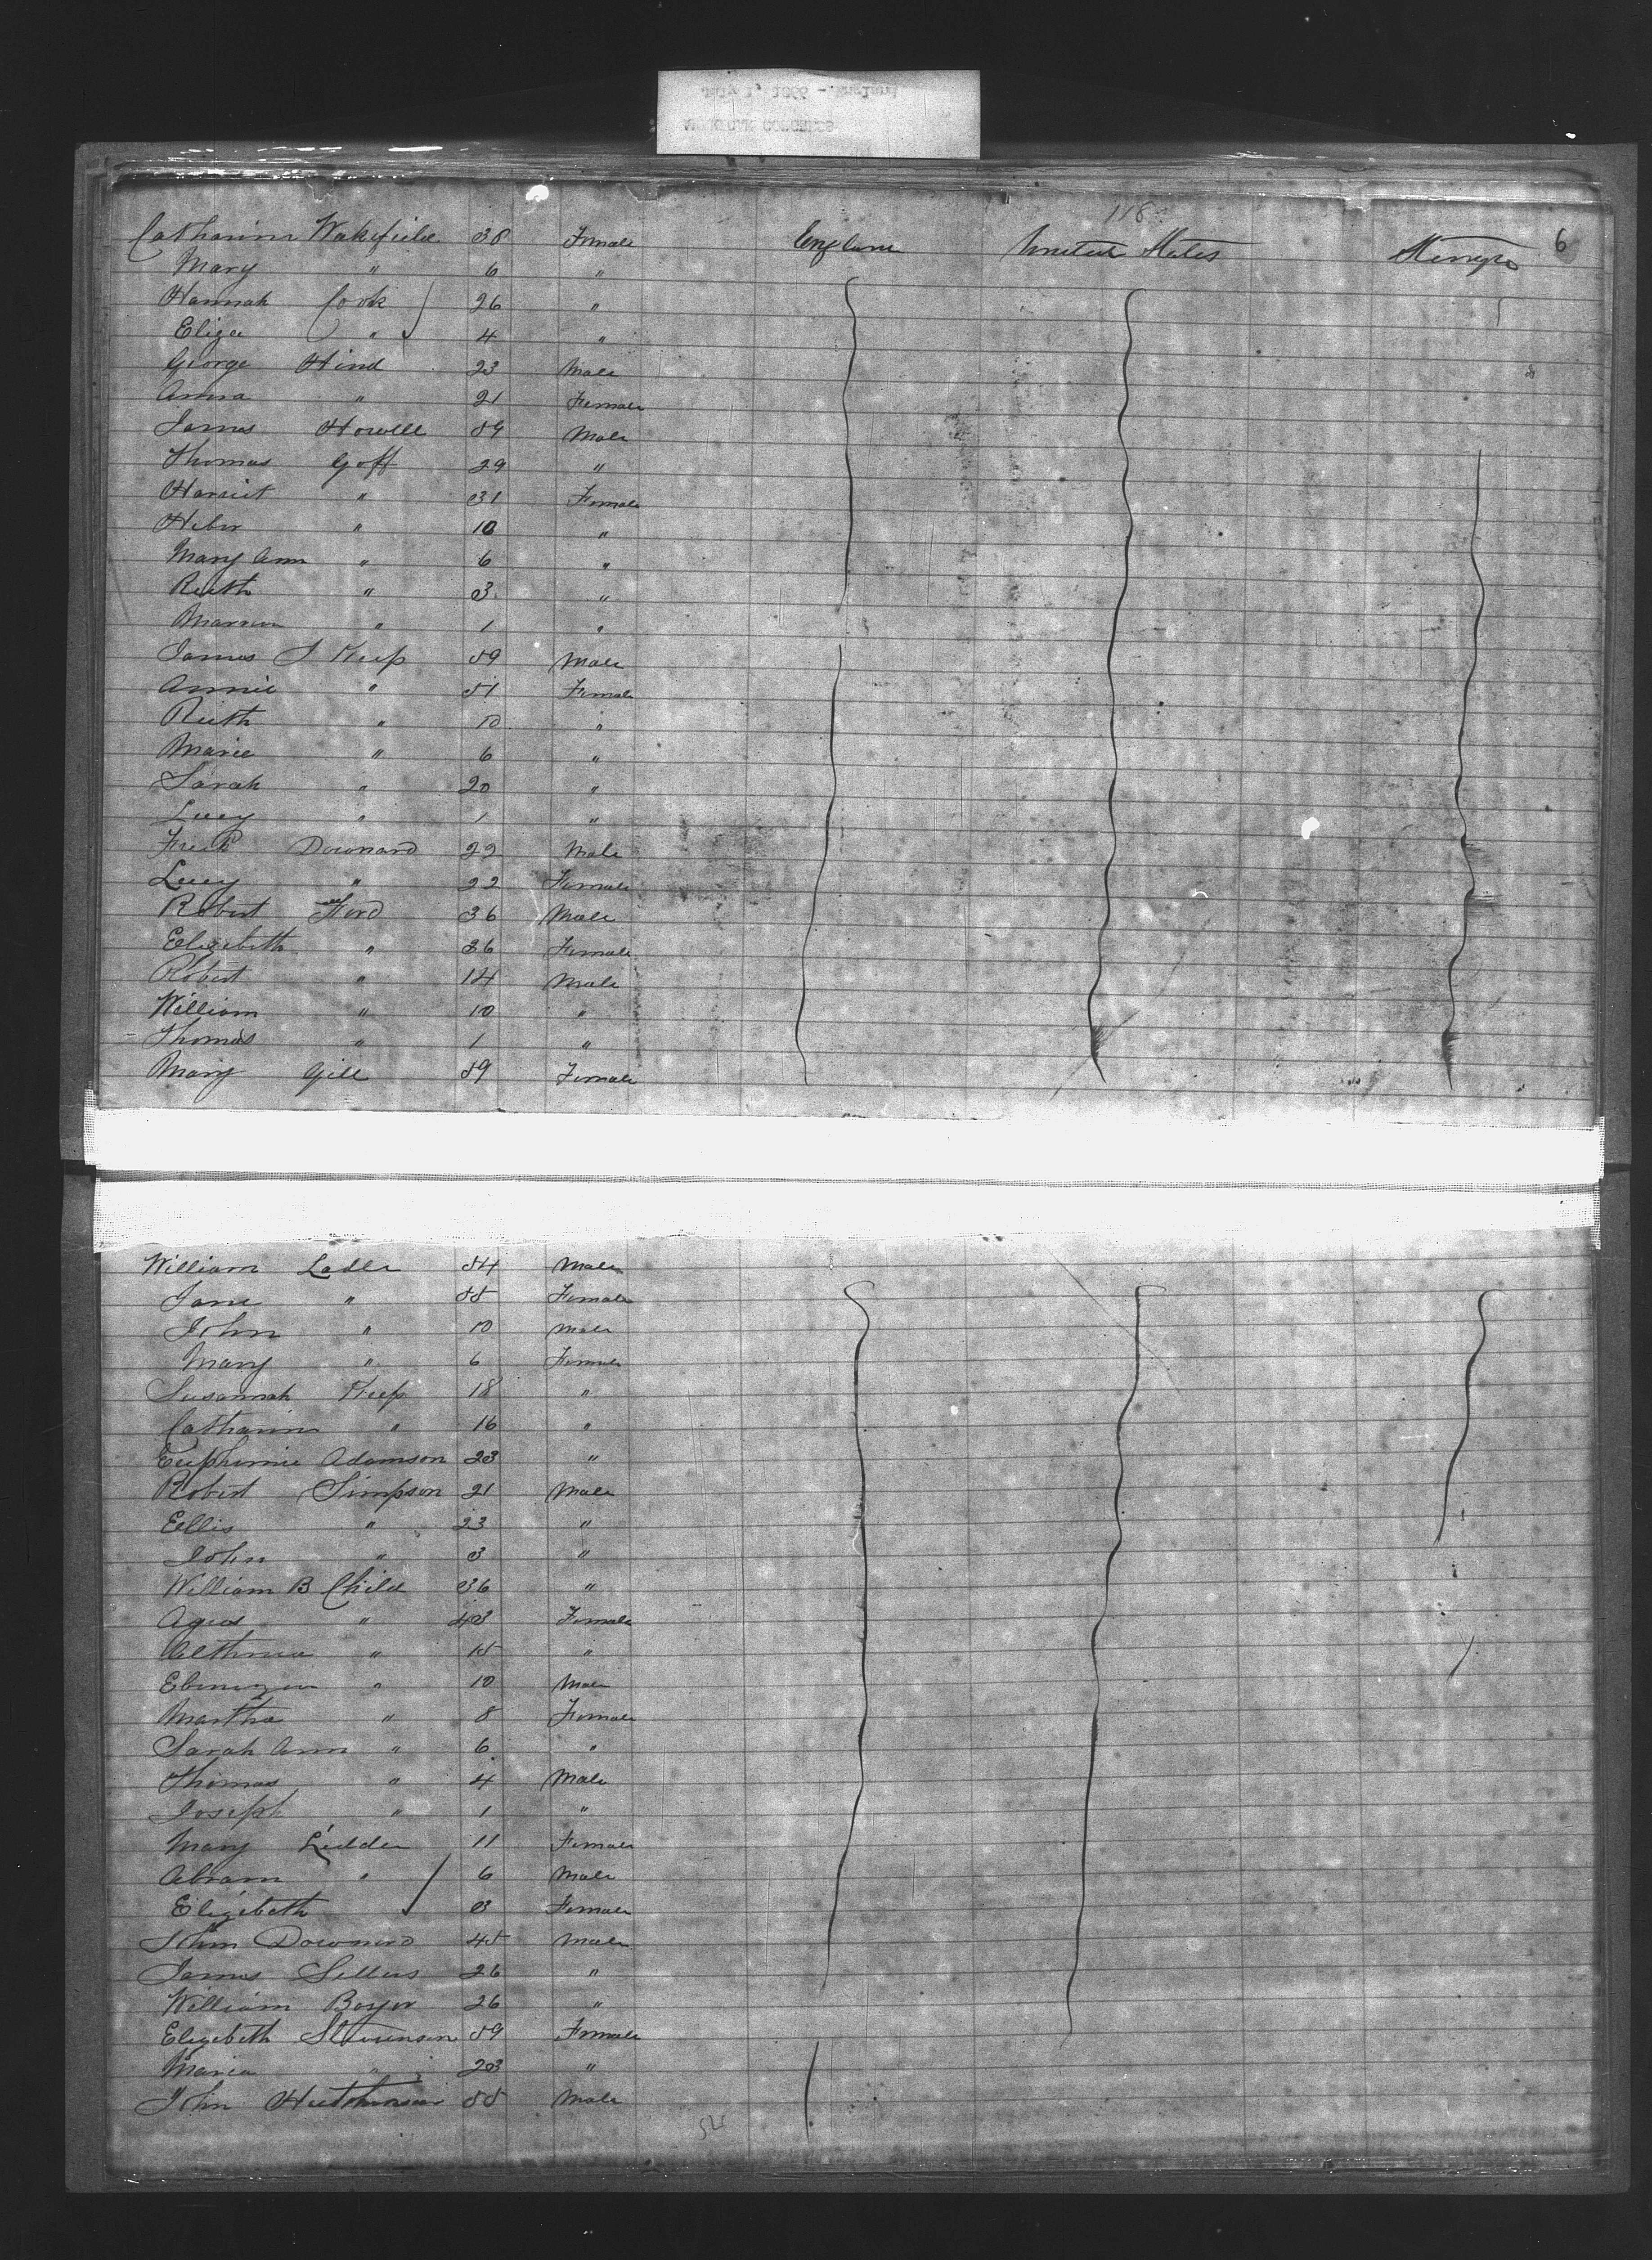 118
6
Catharine Wakefield 38 Female England United States
Mary " 6 "
Hannah Cook 26 "
Eliza " 4 "
George Hind 23 Male
Anna " 21 Female
James Howell 59 Male
Thomas Goff 29 "
Harriet " 31 Female
Heber " 10 "
Mary Ann " 6 "
Ruth " 3 "
" 1 "
James J Keep 59 Male
Annie " 51 Female
Ruth " 10 "
Marie " 6 "
Sarah " 20 "
Lucy " 1 "
Fredk Downard 22 Male
Lucy " 22 Female
Robert Ford 36 Male
Elizebeth " 36 Female
Robert " 14 Male
William " 10 "
Thomas " 1 "
Mary Gill 59 Female
William 54 Male
Jane " 55 Female
John " 10 Male
Mary " 6 Female
Susannah Keep 18 "
Catharine " 16 "
Euphemie Adamson 23 "
Robert Simpson 21 Male
Ellis " 23 "
John " 3 "
William B Child 36 "
" 43 Female
" 15 "
Ebenezer " 10 Male
Martha " 8 Female
Sarah Ann " 6 "
Thomas " 4 Male
Joseph " 1 "
Mary 11 Female
Abram " 6 Male
Elizebeth 3 Female
John Downard 45 Male
James Sellers 26 "
William 26 "
Elizebeth Stevenson 59 Female
Maria " 23 "
John Hutchinson 55 Male